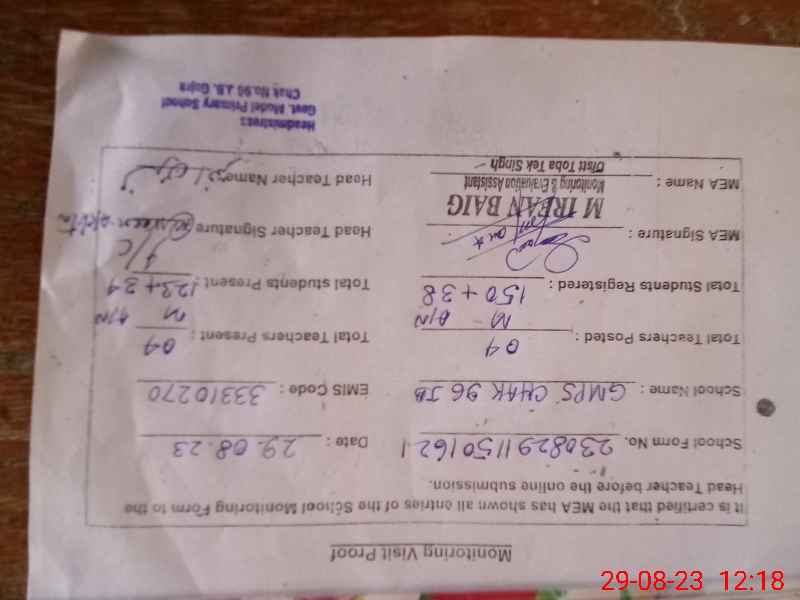 Monitoring Visit Proof
It is certified that the MEA has shown all entries of the School Monitoring Form to the
Head Teacher before the online submission.
School Form No. 2308291150162-1 Date : 29.08.23
School Name : GMPS CHAK 96 JB EMIS Code : 33310270
Total Teachers Posted : 09 Total Teachers Present : 09
M A/N M A/N
Total Students Registered : 150 + 38 Total students Present : 123 + 31
MEA Signature : Head Teacher Signature
M IRFAN BAIG
Monitoring & Evaluation Assistant
MEA Name : Distt Toba Tek Singh Head Teacher Name:
Headmistress
Govt. Model Primary School
Chak No.96 J.B. Gojra
29-08-23 12:18